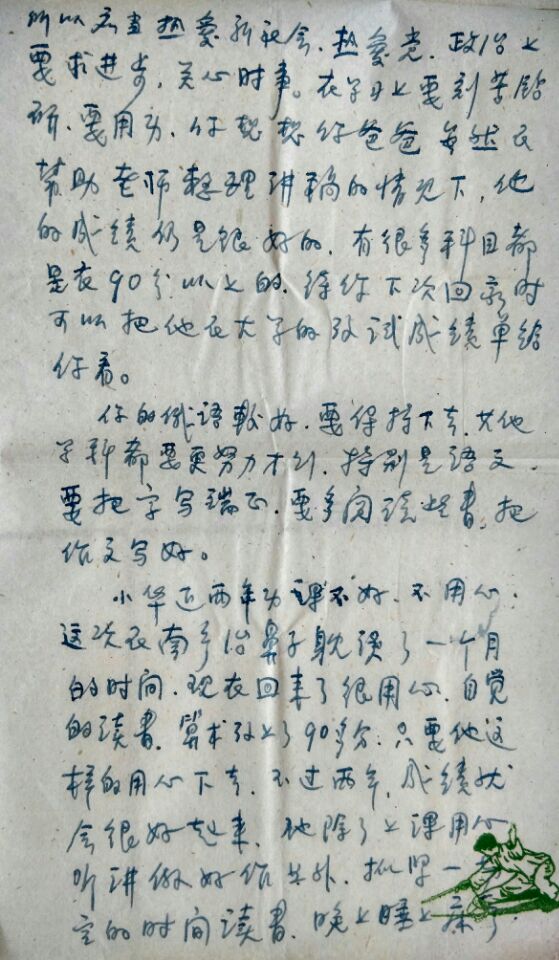 所以应当热爱新社会、热爱党、政治上
要求进步，关心时事。在学习上要刻苦钻
研、要用功，你想想你爸爸虽然在
帮助老师整理讲稿的情况下，他
的成绩仍是很好的，有很多科目都
是在90分以上的，待你下次回家时
可以把他在大学的考试成绩单给
你看。
你的俄语较好，要保持下去，其他
学科都要更努力才行，特别是语文，
要把字写端正，要多阅读些书，把
作文写好。
小华近两年功课不好、不用心，
这次在南京治鼻子耽误了一个月
的时间，现在回来了很用心，自觉
的读书，算术考上了90多分，只要他这
样的用心下去，不过两年，成绩就
会很好起来，他除了上课用心
听讲做好作业外，抓紧一
定的时间读书，晚上睡上床了